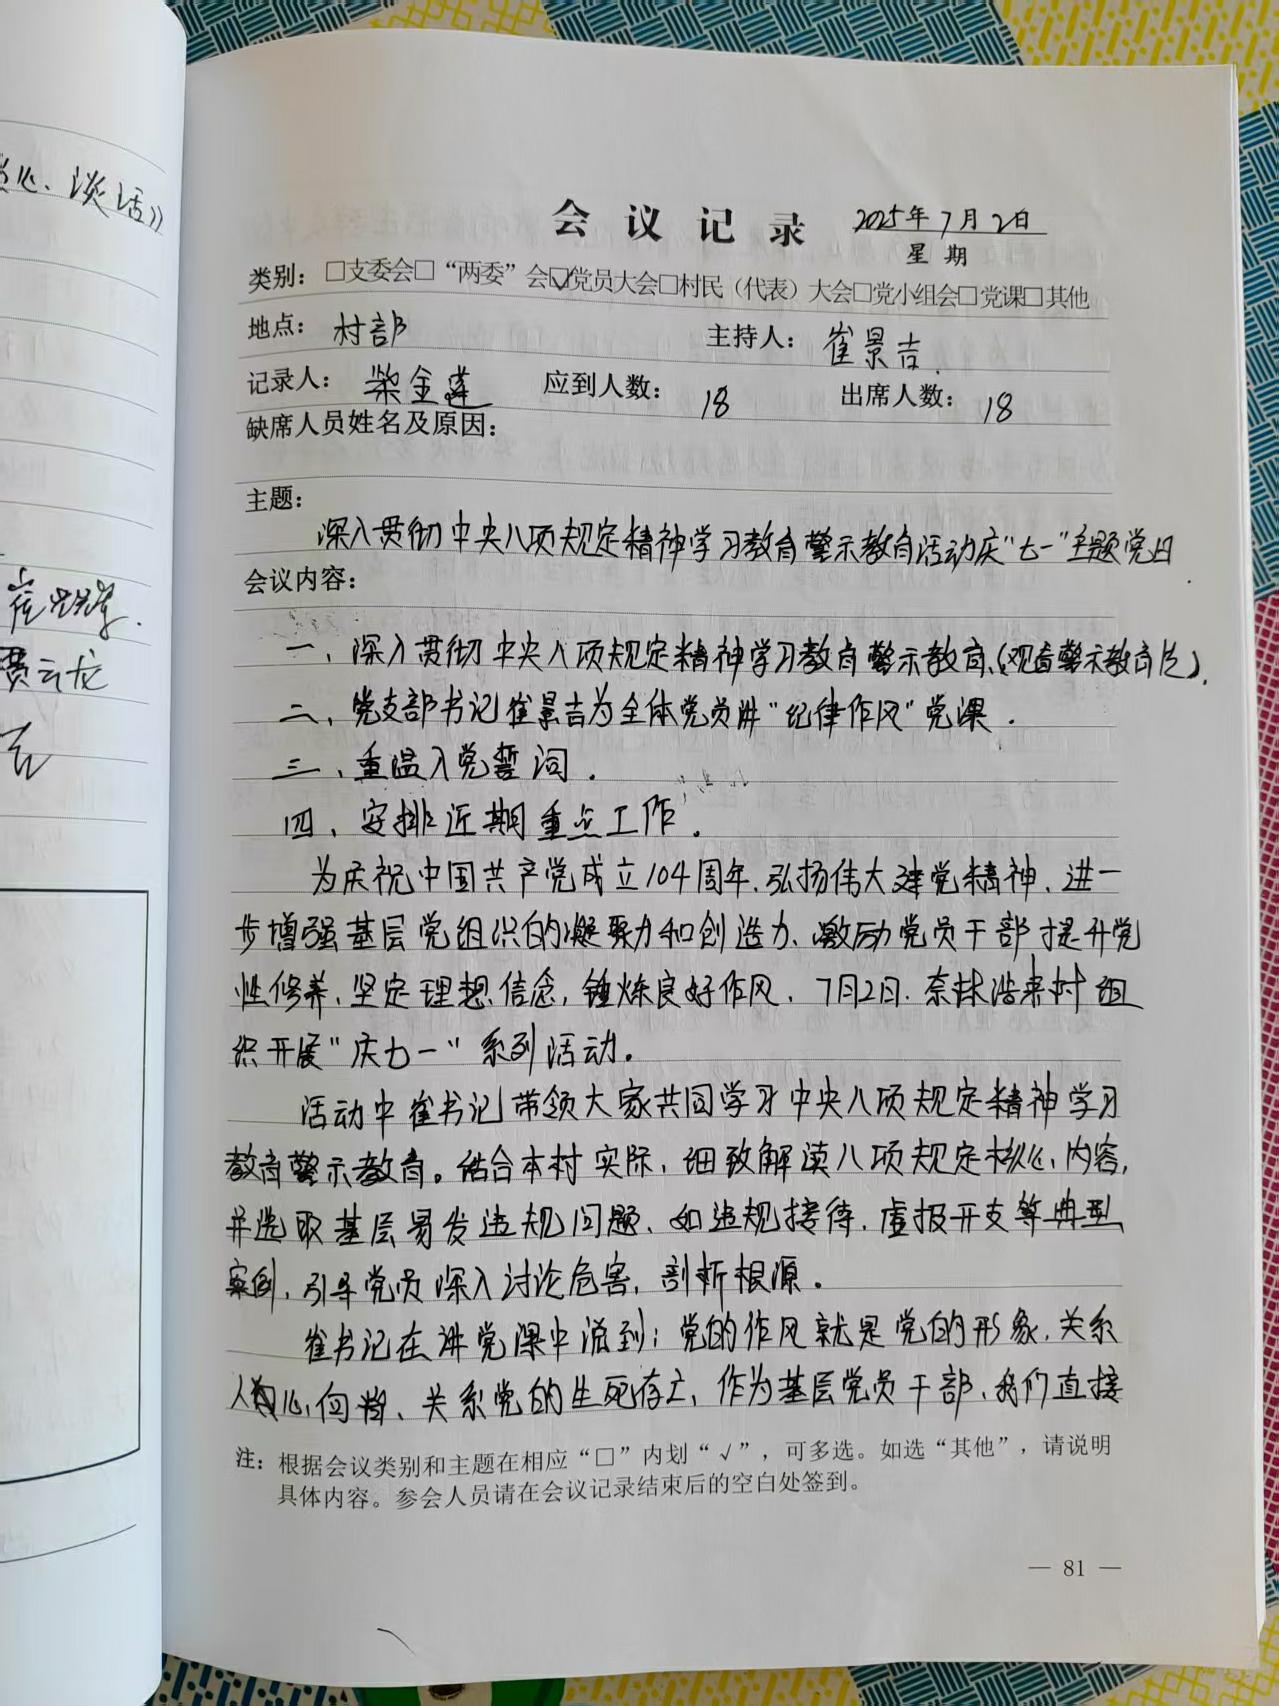 心、谈话》
贾云龙
会议记录 2025年7月2日
星期
类别：□支委会□“两委”会☑党员大会□村民（代表）大会□党小组会□党课□其他
地点：村部 主持人：崔景吉.
记录人：柴金莲 应到人数：18 出席人数：18
缺席人员姓名及原因：
主题：
深入贯彻中央八项规定精神学习教育警示教育活动庆“七一”主题党日.
会议内容：
一、深入贯彻中央八项规定精神学习教育警示教育、(观看警示教育片).
二、党支部书记崔景吉为全体党员讲“纪律作风”党课.
三、重温入党誓词.
四、安排近期重点工作.
为庆祝中国共产党成立104周年、弘扬伟大建党精神、进一
步增强基层党组织的凝聚力和创造力、激励党员干部提升党
性修养、坚定理想信念，锤炼良好作风、7月2日、奈林浩来村组
织开展“庆七一”系列活动。
活动中崔书记带领大家共同学习中央八项规定精神学习
教育警示教育。结合本村实际，细致解读八项规定核心内容，
并选取基层易发违规问题、如违规接待、虚报开支等典型
案例，引导党员深入讨论危害，剖析根源。
崔书记在讲党课中说到；党的作风就是党的形象、关系
人心向背、关系党的生死存亡、作为基层党员干部、我们直接
注：根据会议类别和主题在相应“□”内划“√”，可多选。如选“其他”，请说明
具体内容。参会人员请在会议记录结束后的空白处签到。
— 81 —